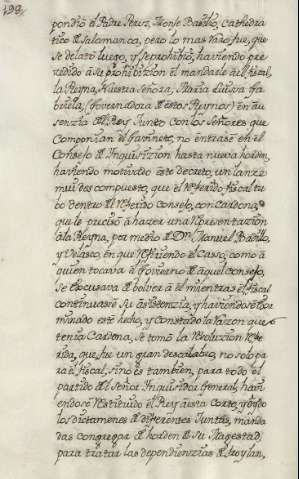 199
pondió el Padre Perez, Monje Basilio, Cathedra
tico de Salamanca, pero lo mas raro fue, que
se delató luego, y se prohibió, haviendo pre
cedido à su prohibizion el mandarle al fiscal,
la Reyna, Nuestra Señora, Maria Luisa ga
briela, (Governadora de estos Reynos) en au
senzia del Rey Junto con los Señores que
Componian el Gavinete, no entrase en el
Consejo de Inquisizion hasta nueva horden,
haviendo motivado este decreto, un lanze
mui descompuesto, que el referido fiscal tu
bo dentro del referido consejo, con Cardona,
que le precisó à hazer una Representazion
à la Reyna, por medio de Dn. Manuel Badillo,
y Velasco, en que refiriendo el caso, como à
quien tocava el govierno de aquel consejo,
se escusava de bolver à el mientras el fiscal
continuase su asistenzia, y haviendose
minado este hecho, y constado la razon que
tenia Cardona, se tomó la resoluzion refe
rida, que fue un gran descalabro, no solo pa
ra el fiscal, sino es tambien, para todo el
partido del Señor Inquisidor General; havi
endose restituido el Rey à esta Corte, y oydo
los dictamenes de diferentes Juntas, manda
das congregar de horden de su Magestad,
para tratar las dependienzias de